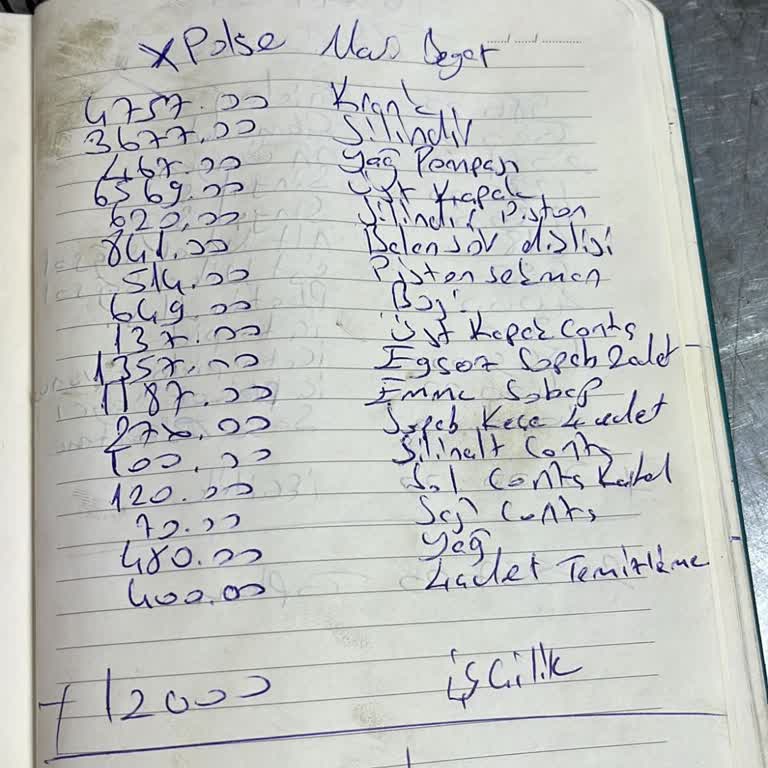 XPulse
4757.00 Krank
3677.00 Silindir
467.00 Yağ Pompası
6569.00 Üst Kapak
620.00 Silindir Piston
841.00 Balansör dişlisi
514.00 Piston sekman
649.00 Buji
137.00 Üst Kapak Conta
1357.00 Egsoz Supab 2adet
1187.00 Emme Subap
276.00 Supab Keçe 4 adet
100.00 Silinalt Conta
120.00 Sol Conta
70.00 Sağ Conta
480.00 Yağ
400.00 4adet Temizleme
+ 12000 işçilik